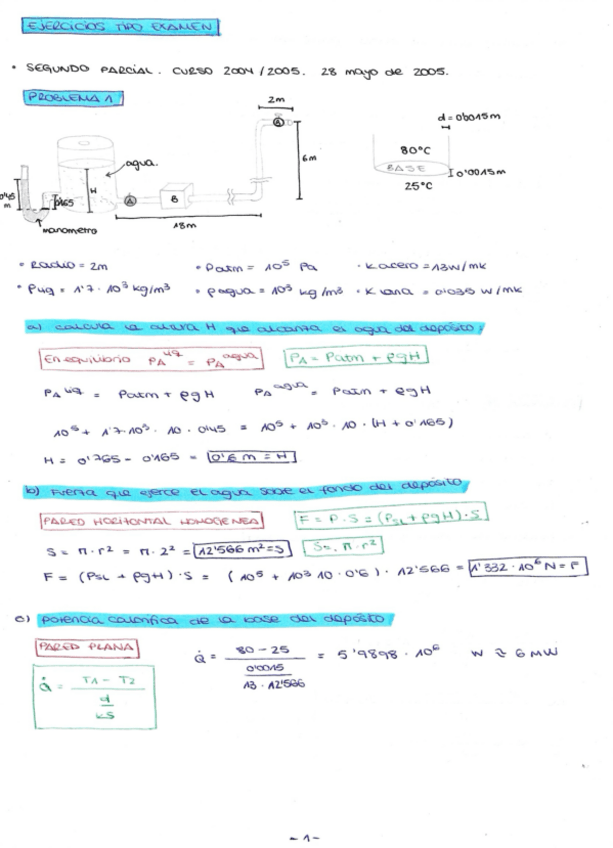 EJERCICIOS TIPO EXAMEN
• SEGUNDO PARCIAL. CURSO 2004/2005. 28 mayo de 2005.
PROBLEMA 1
2m
A
6m
agua.
H
0'45 m
0'165
A
B
18m
manometro
d = 0'0015m
80°C
BASE
0'0015m
25°C
• Radio = 2m
• Patm = 10⁵ Pa
• K acero = 13W/mk
• ρliq = 1'7·10³ kg/m³
• ρagua = 10³ kg/m³
• K lana = 0'035 W/mk
a) calcula la altura H que alcanza el agua del depósito:
En equilibrio PA liq = PA agua
PA = Patm + ρgH
PA liq = Patm + ρgH
PA agua = Patm + ρgH
10⁵ + 1'7·10³ · 10 · 0'45 = 10⁵ + 10³ · 10 · (H + 0'165)
H = 0'765 - 0'165 = 0'6 m = H
b) Fuerza que ejerce el agua sobre el fondo del depósito
PARED HORIZONTAL HOMOGENEA
F = P·S = (PSL + ρgH)·S
S = π·r² = π·2² = 12'566 m² = S
S = π·r²
F = (PSL + ρgH)·S = (10⁵ + 10³ 10·0'6)· 12'566 = 1'332·10⁶ N = F
c) potencia calorífica de la base del depósito
PARED PLANA
Q̇ = T1 - T2 / d / kS
Q̇ = 80 - 25 / 0'0015 / 13·12'566 = 5'9898·10⁶ W ≈ 6 MW
- 1 -